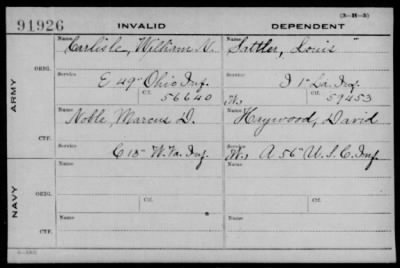 (3-H-5)
91926 INVALID DEPENDENT
Name Carlisle, William N. Name Sattler, Louis "
ARMY
ORIG. Service E 49" Ohio Inf. Service I 1" La. Inf.
Ctf. 56640 W. Ctf. 59453
Name Noble, Marcus D. Name Heywood, David
CTF. Service C 15" W. Va. Inf. Service W. A 56" U. S. C. Inf.
NAVY
Name Name
ORIG. Service Ctf. Service Ctf.
Name Name
CTF. Service Service